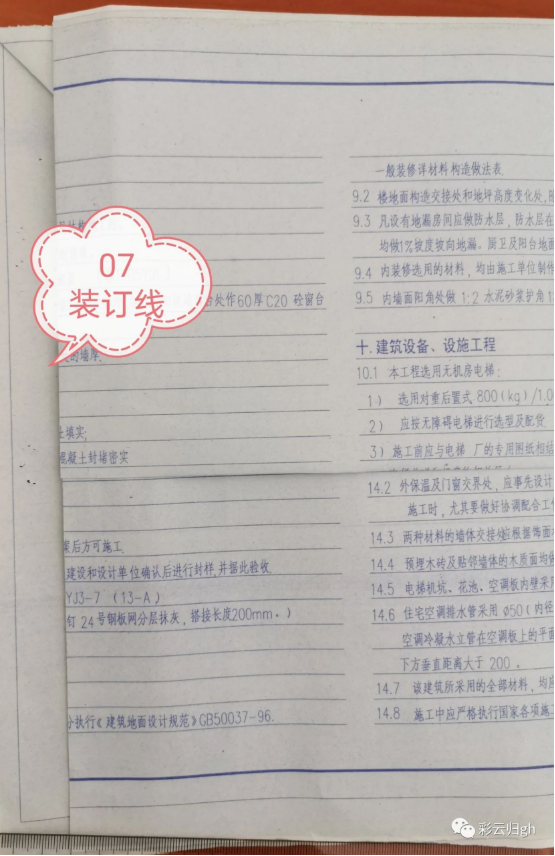 07
装订线
台处作60厚C20 砼窗台
的墙厚.
填实;
混凝土封堵密实
案后方可施工.
建设和设计单位确认后进行封样,并据此验收.
YJ3-7 (13-A)
钉 24号钢板网分层抹灰，搭接长度200mm。)
分执行《建筑地面设计规范》GB50037-96.
一般装修详材料构造做法表
9.2 楼地面构造交接处和地坪高度变化处,
9.3 凡设有地漏房间应做防水层，防水层在
均做1%坡度坡向地漏。厨卫及阳台地面
9.4 内装修选用的材料，均由施工单位制作
9.5 内墙面阳角处做 1:2 水泥砂浆护角1
十. 建筑设备、设施工程
10.1 本工程选用无机房电梯:
1） 选用对重后置式 800(kg)/1.0
2） 应按无障碍电梯进行选型及配货
3）施工前应与电梯 厂的专用图纸相结
14.2 外保温及门窗交界处，应事先设计
施工时，尤其要做好协调配合工
14.3 两种材料的墙体交接处应根据饰面
14.4 预埋木砖及贴邻墙体的木质面均
14.5 电梯机坑、花池、空调板内壁采用
14.6 住宅空调排水管采用 ø50(内径
空调冷凝水立管在空调板上的平面
下方垂直距离大于 200 。
14.7 该建筑所采用的全部材料，均应
14.8 施工中应严格执行国家各项施工
彩云归gh